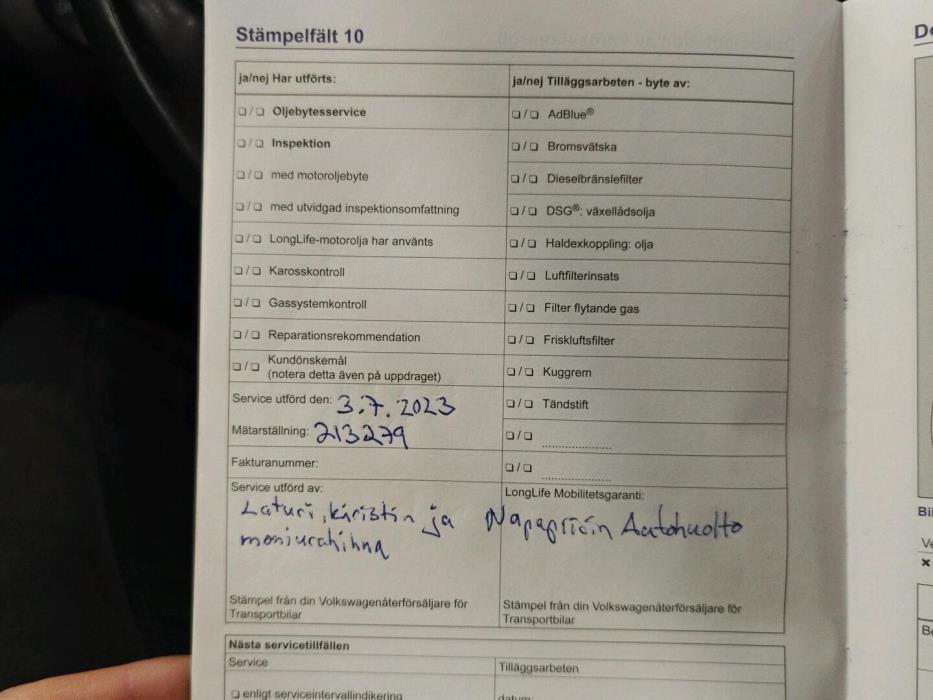 Stämpelfält 10
De
ja/nej Har utförts:
❏ / ❏ Oljebytesservice
❏ / ❏ Inspektion
❏ / ❏ med motoroljebyte
❏ / ❏ med utvidgad inspektionsomfattning
❏ / ❏ LongLife-motorolja har använts
❏ / ❏ Karosskontroll
❏ / ❏ Gassystemkontroll
❏ / ❏ Reparationsrekommendation
❏ / ❏ Kundönskemål
(notera detta även på uppdraget)
Service utförd den: 3.7.2023
Mätarställning: 213279
Fakturanummer:
Service utförd av:
Laturi, kiristin ja
moniurahihna
Stämpel från din Volkswagenåterförsäljare för
Transportbilar
ja/nej Tilläggsarbeten - byte av:
❏ / ❏ AdBlue®
❏ / ❏ Bromsvätska
❏ / ❏ Dieselbränslefilter
❏ / ❏ DSG®: växellådsolja
❏ / ❏ Haldexkoppling: olja
❏ / ❏ Luftfilterinsats
❏ / ❏ Filter flytande gas
❏ / ❏ Friskluftsfilter
❏ / ❏ Kuggrem
❏ / ❏ Tändstift
❏ / ❏ ....................
❏ / ❏ ....................
LongLife Mobilitetsgaranti:
Napapiirin Autohuolto
Stämpel från din Volkswagenåterförsäljare för
Transportbilar
Nästa servicetillfällen
Service
❏ enligt serviceintervallindikering
Tilläggsarbeten
datum:
Bil
Ve
Be